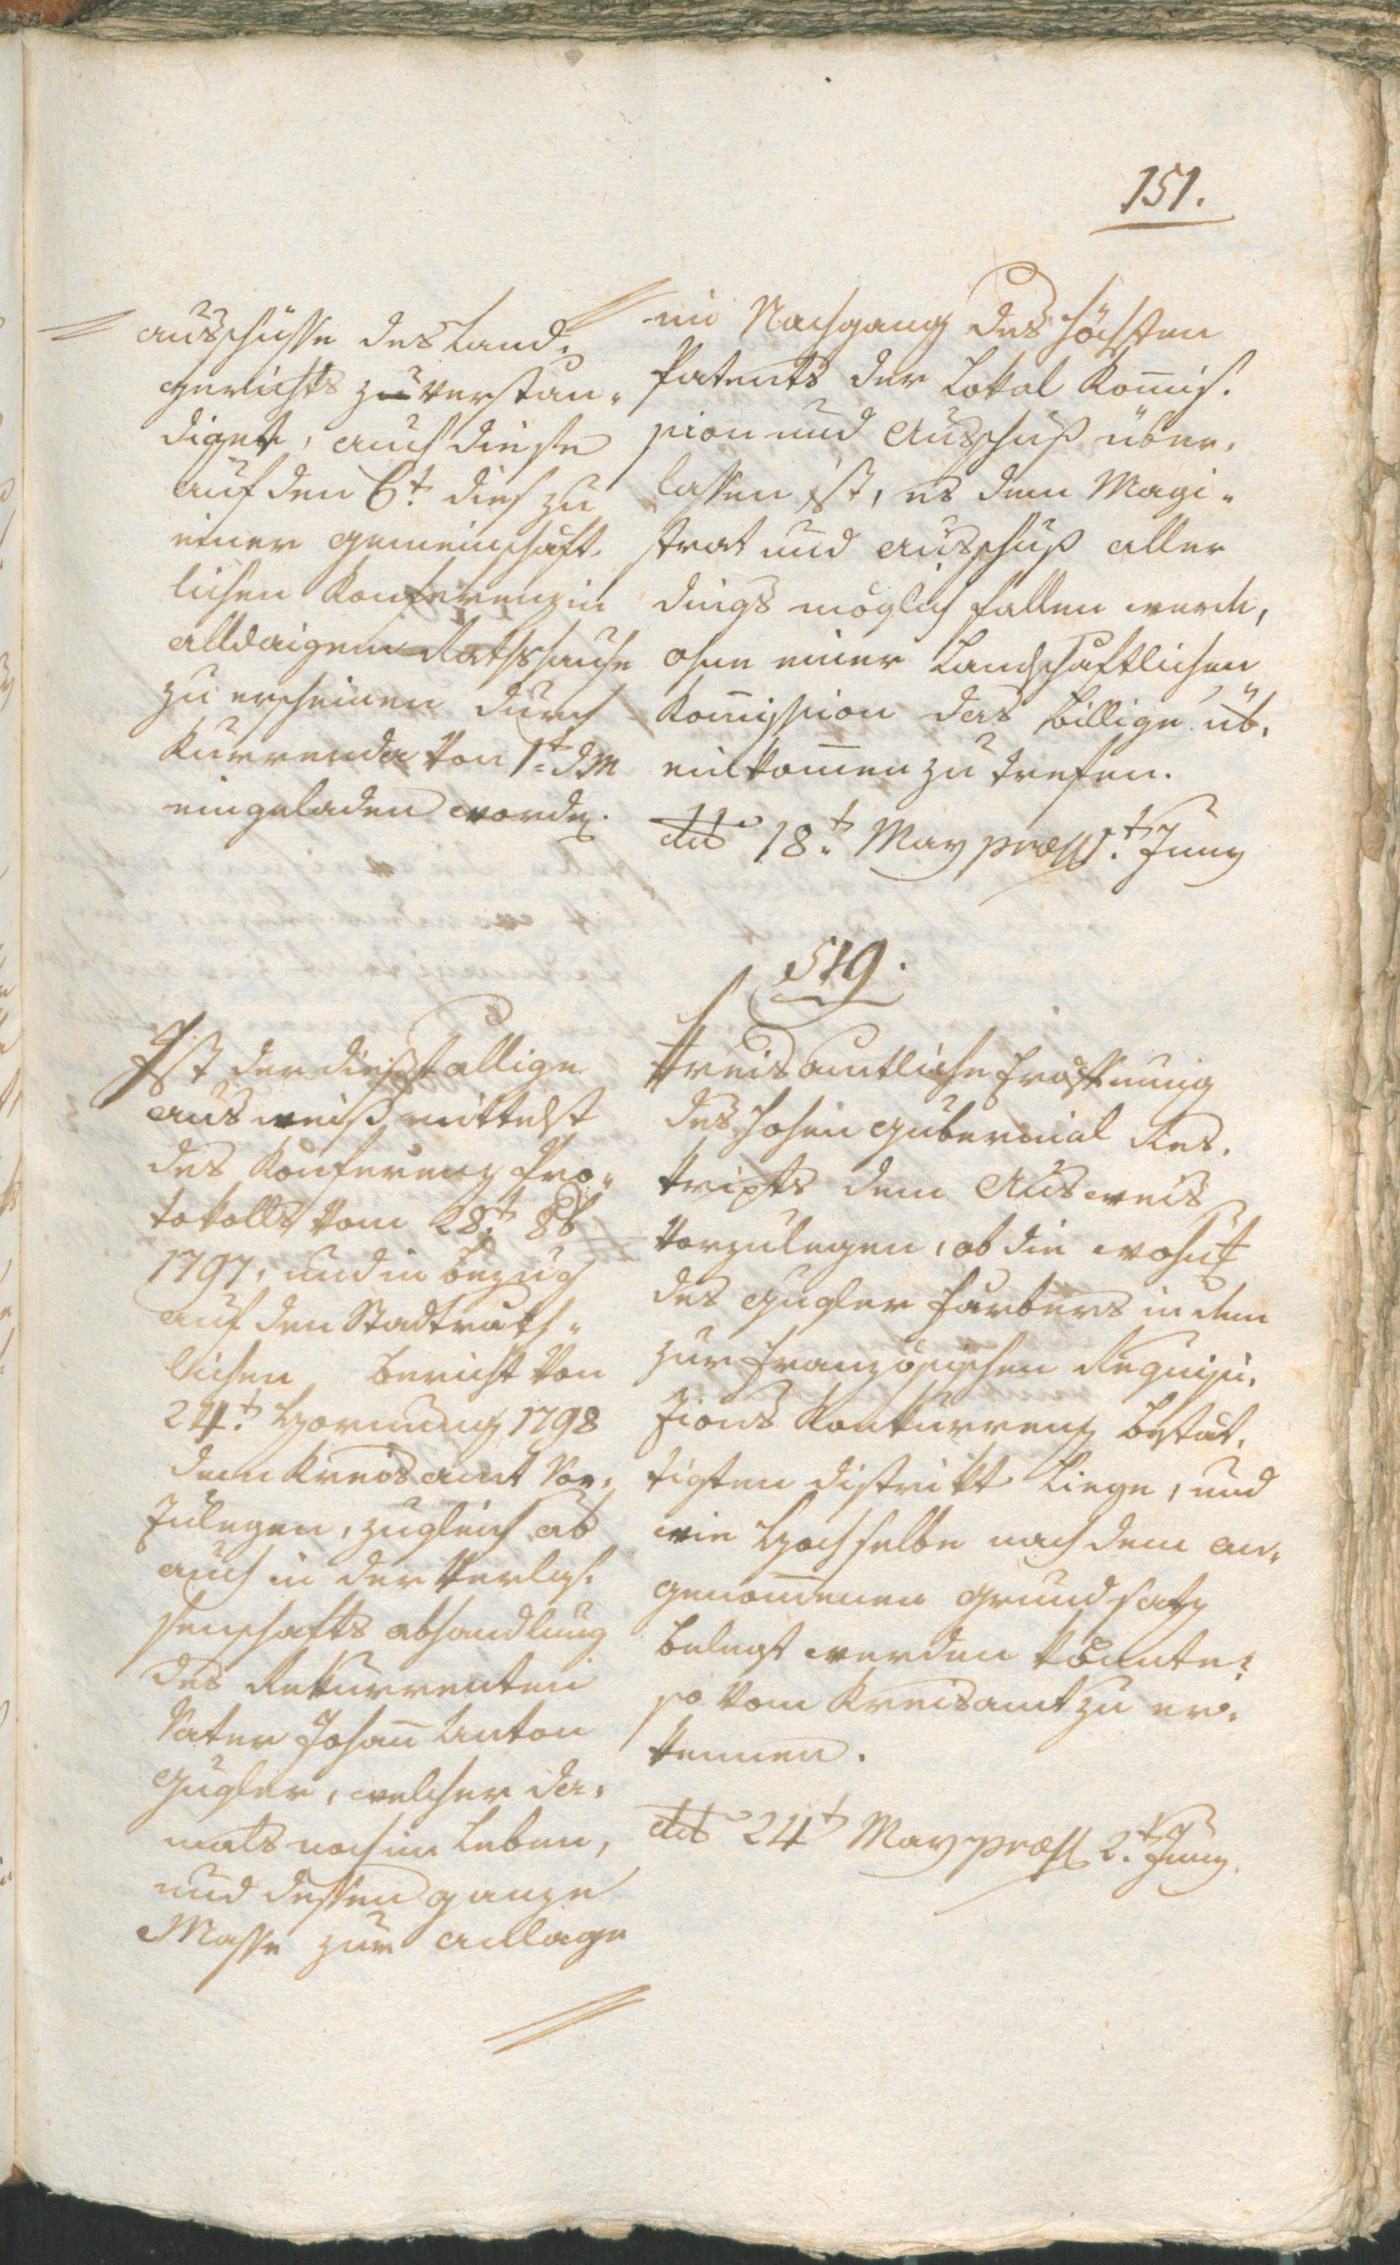 151.
ausschüsse des Land-
gerichts zu verstan-
diget, auch diese
auf den 6t dies zu
einer gemeinschaft-
lichen Konferenz in
alldaigem Rathshause
zu erscheinen durch
Kurrenda von 1t d M
eingeladen worden.
im Nachgang des höchsten
Patents der Lokal Kom̄is-
sion und Ausschuß über-
lassen ist, es dem Magi-
strat und Ausschuß aller
dings möglich fallen werde,
ohne einer Landschaftlichen
Kom̄ission das billige üb-
einkom̄en zu trefen.
dto 18t May præs 1t Juny
519.
Ist der dießfallige
Ausweiß mittelst
des Konferenz Pro-
tokolls vom 28t 8b
1797, und in bezug
auf den Stadträth-
lichen bericht von
24t Hornung 1798
dem Kreisamt vor-
zulegen, zugleich ab
auch in der Verlas-
senschafts abhandlung
des Rekurrenten
Vater Johan̄ Anton
Gugler, welcher da-
mals noch im Leben,
und dessen ganze
Masse zur anlage
Kreisamtliche Eröffnung
des hohen Gubernial Res-
kripts dem Ausweis
vorzulegen, ob die
des Gugler Färbers in dem
zur französischen Requisi-
zions Konkurrenz bestät-
tigten distrikt liege, und
wie hoch selbe nach dem an-
genom̄enen Grundsatz
belegt werden könnte?
so vom Kreisamt zu er-
kennen.
dto 24t May præs 2t Juny.